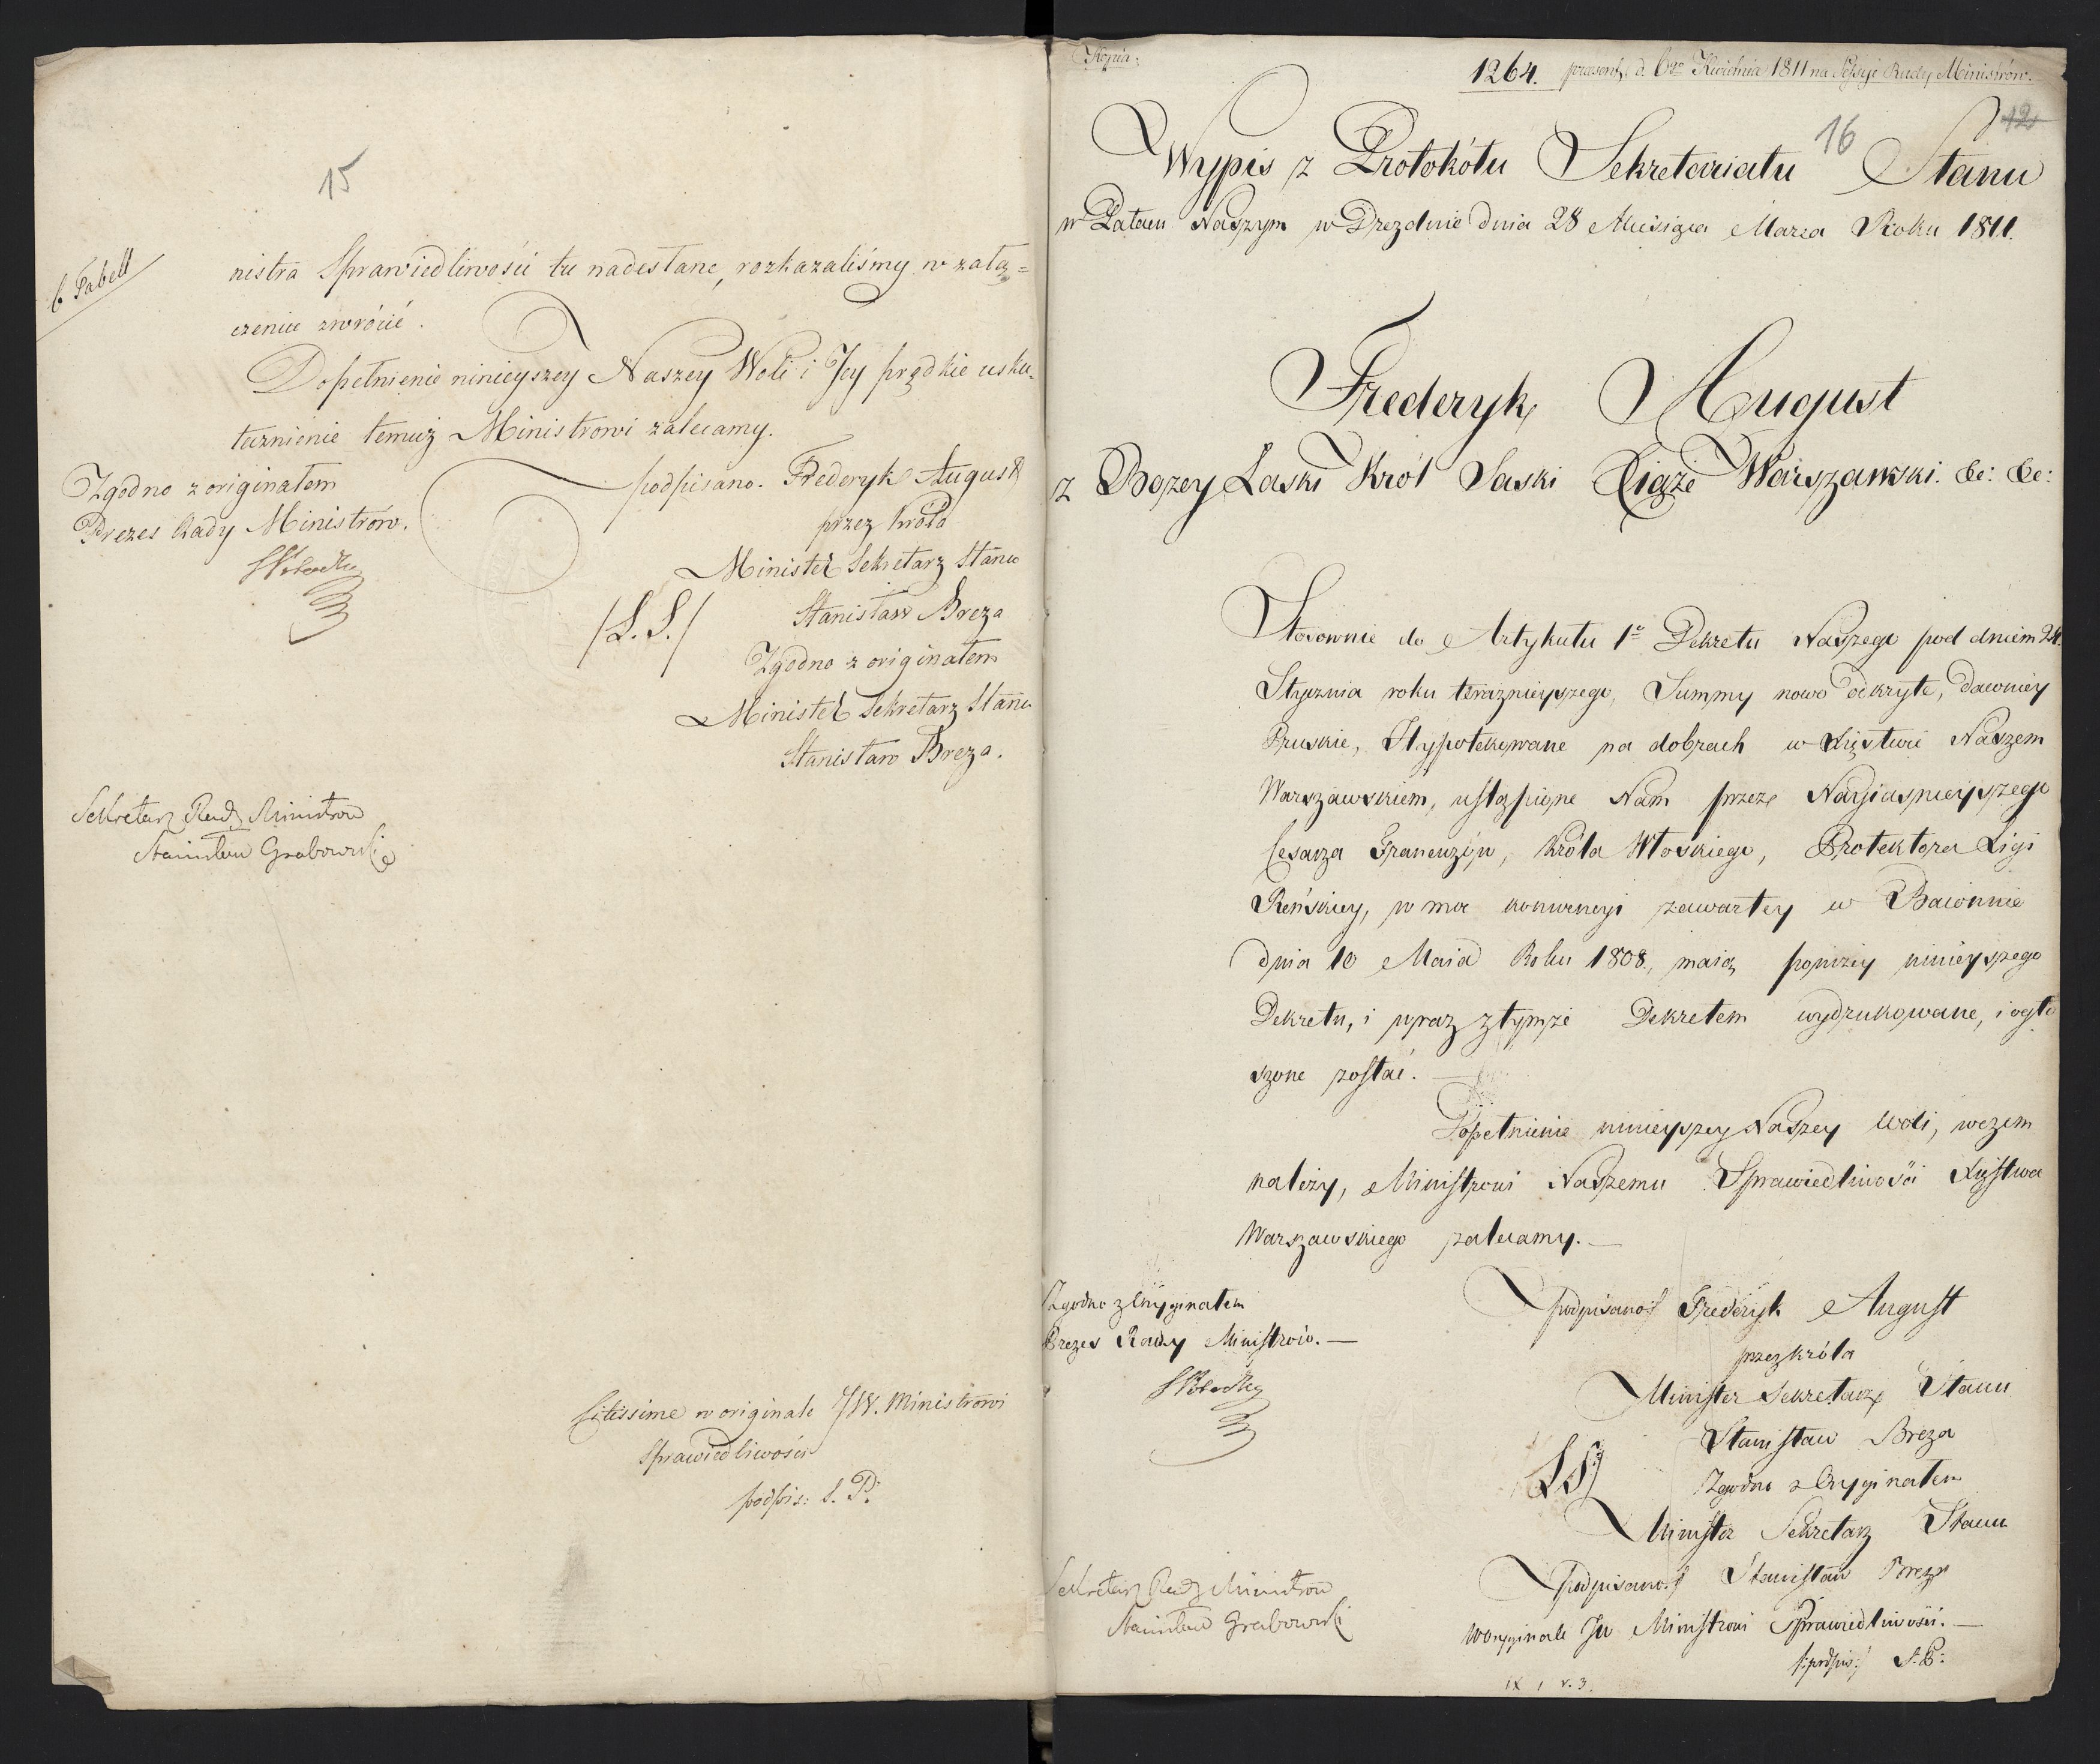 15
6. Tabell
nistra Sprawiedliwości tu nadesłane, rozkazaliśmy w załą=
czeniu zwrócić.
Dopełnienie ninieyszey Naszey Woli i Jey prędkie usku-
tecznienie temuż Ministrowi zalecamy.
Zgodno z originałem
Prezes Rady Ministrów.
podpisano. Frederyk August
przez Króla
Minister Sekretarz Stanu
/L. S./
Stanisław Breza
Zgodno z originałem
Minister Sekretarz Stanu
Stanisław Breza.
Sekretarz Rady Ministrow
Stanisław Grabowski
citissime w originale JW. Ministrowi
Sprawiedliwości
podpis: S. P.
Kopia.
1264. praesent. d. 6go Kwietnia 1811 na Sessyi Rady Ministrów.
12
16
Wypis z Protokółu Sekretariatu Stanu
w Pałacu Naszym w Dreznie dnia 28 Miesiąca Marca Roku 1811.
Frederyk August
z Bozey Łaski Król Saski Xiąże Warszawski. &c: &c:
Stosownie do Artykułu 1o Dekretu Naszego pod dniem 24.
Stycznia roku teraznieyszego, Summy nowo odkryte, dawniey
Pruskie, Hypotekowane na dobrach w Xięstwie Naszem
Warszawskiem, ustąpione Nam przez Nayiasnieyszego
Cesarza Francuzów, Króla Włoskiego, Protektora Ligi
Reńskiey, w moc konwencyi zawartey w Baionnie
dnia 10 Maia Roku 1808, maią poniżey ninieyszego
Dekretu, i wraz z tymże Dekretem wydrukowane, i ogło
szone zostać. —
Dopełnienie ninieyszey Naszey Woli, w czem
należy, Ministrowi Naszemu Sprawiedliwości Xięstwa
Warszawskiego zalecamy. —
Zgodno z Oryginałem
Prezes Rady Ministrów. —
podpisano/ Frederyk August
przez króla
Minister Sekretarz Stanu
Stanisław Breza
L S/
Zgodno z Oryginałem
Minister Sekretarz Stanu
podpisano/ Stanisław Breza
Sekretarz Rady Ministrow
Stanisław Grabowski
w oryginale JW Ministrowi Sprawiedliwości. —
/:podpis:/ S. P.
IX 1 v. 3.